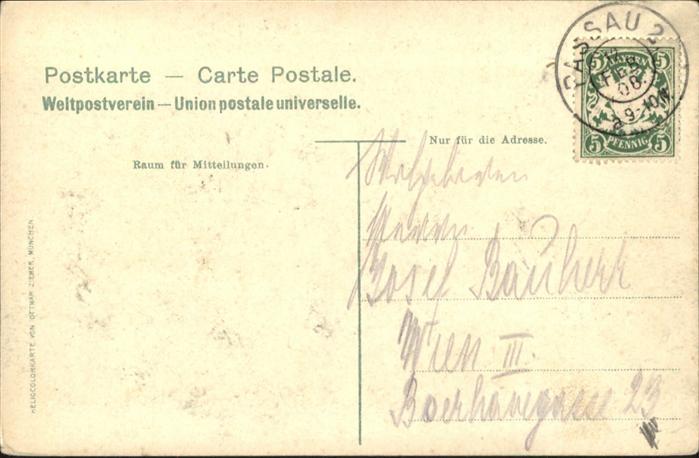 Postkarte — Carte Postale.
Weltpostverein — Union postale universelle.
Nur für die Adresse.
Raum für Mitteilungen.
PASSAU 2
FEB
08.
9-10
5 BAYERN 5
5 PFENNIG 5
Wohlgeboren
Herrn
Josef
Wien III.
Boerhavegasse 23
HELIOCOLORKARTE VON OTTMAR ZIEHER, MÜNCHEN